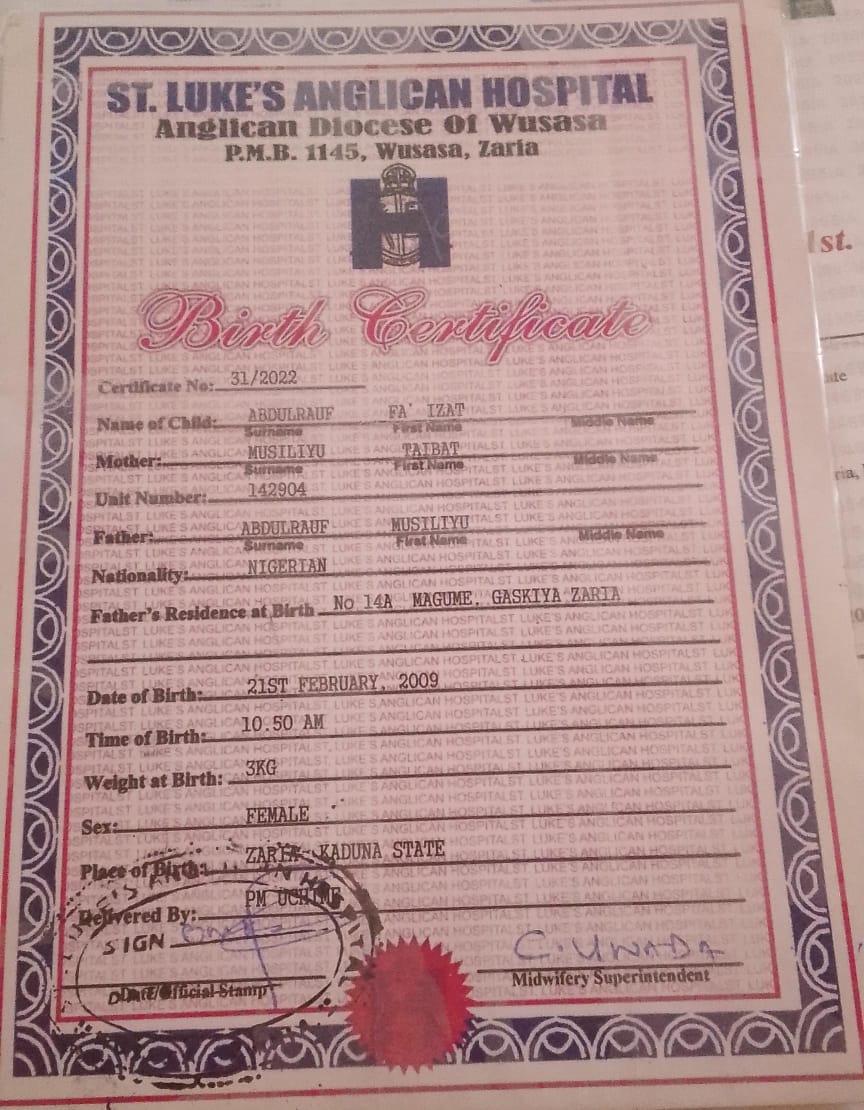 ST. LUKE'S ANGLICAN HOSPITAL
Anglican Diocese Of Wusasa
P.M.B. 1145, Wusasa, Zaria
H
Birth Certificate
Certificate No: 31/2022
Name of Child: ABDULRAUF FA' IZAT
Surname First Name Middle Name
Mother: MUSILIYU TAIBAT
Surname First Name Middle Name
Unit Number: 142904
Father: ABDULRAUF MUSILIYU
Surname First Name Middle Name
Nationality: NIGERIAN
Father's Residence at Birth No 14A MAGUME, GASKIYA ZARIA
Date of Birth: 21ST FEBRUARY, 2009
Time of Birth: 10.50 AM
Weight at Birth: 3KG
Sex: FEMALE
Place of Birth: ZARIA KADUNA STATE
Delivered By: PM
SIGN
C. UWADA
Date/Official Stamp
Midwifery Superintendent
st.